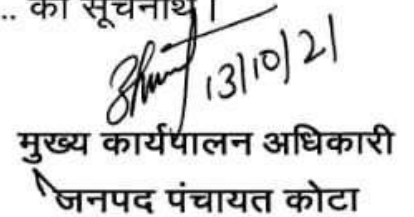 .. को सूचनार्थ।
13/10/21
मुख्य कार्यपालन अधिकारी
जनपद पंचायत कोटा